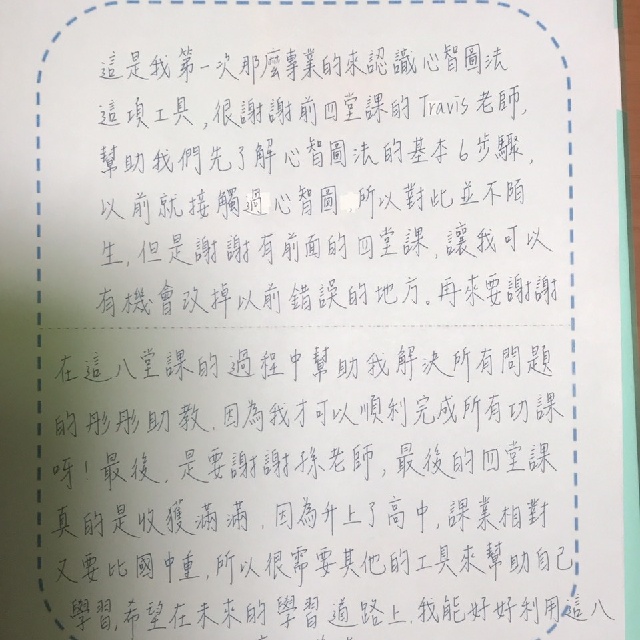 這是我第一次那麼專業的來認識心智圖法
這項工具，很謝謝前四堂課的Travis老師，
幫助我們先了解心智圖法的基本6步驟，
以前就接觸過心智圖，所以對此並不陌
生，但是謝謝有前面的四堂課，讓我可以
有機會改掉以前錯誤的地方。再來要謝謝
在這八堂課的過程中幫助我解決所有問題
的彤彤助教，因為我才可以順利完成所有功課
呀！最後，是要謝謝孫老師，最後的四堂課
真的是收獲滿滿，因為升上了高中，課業相對
又要比國中重，所以很需要其他的工具來幫助自己
學習，希望在未來的學習道路上，我能好好利用這八